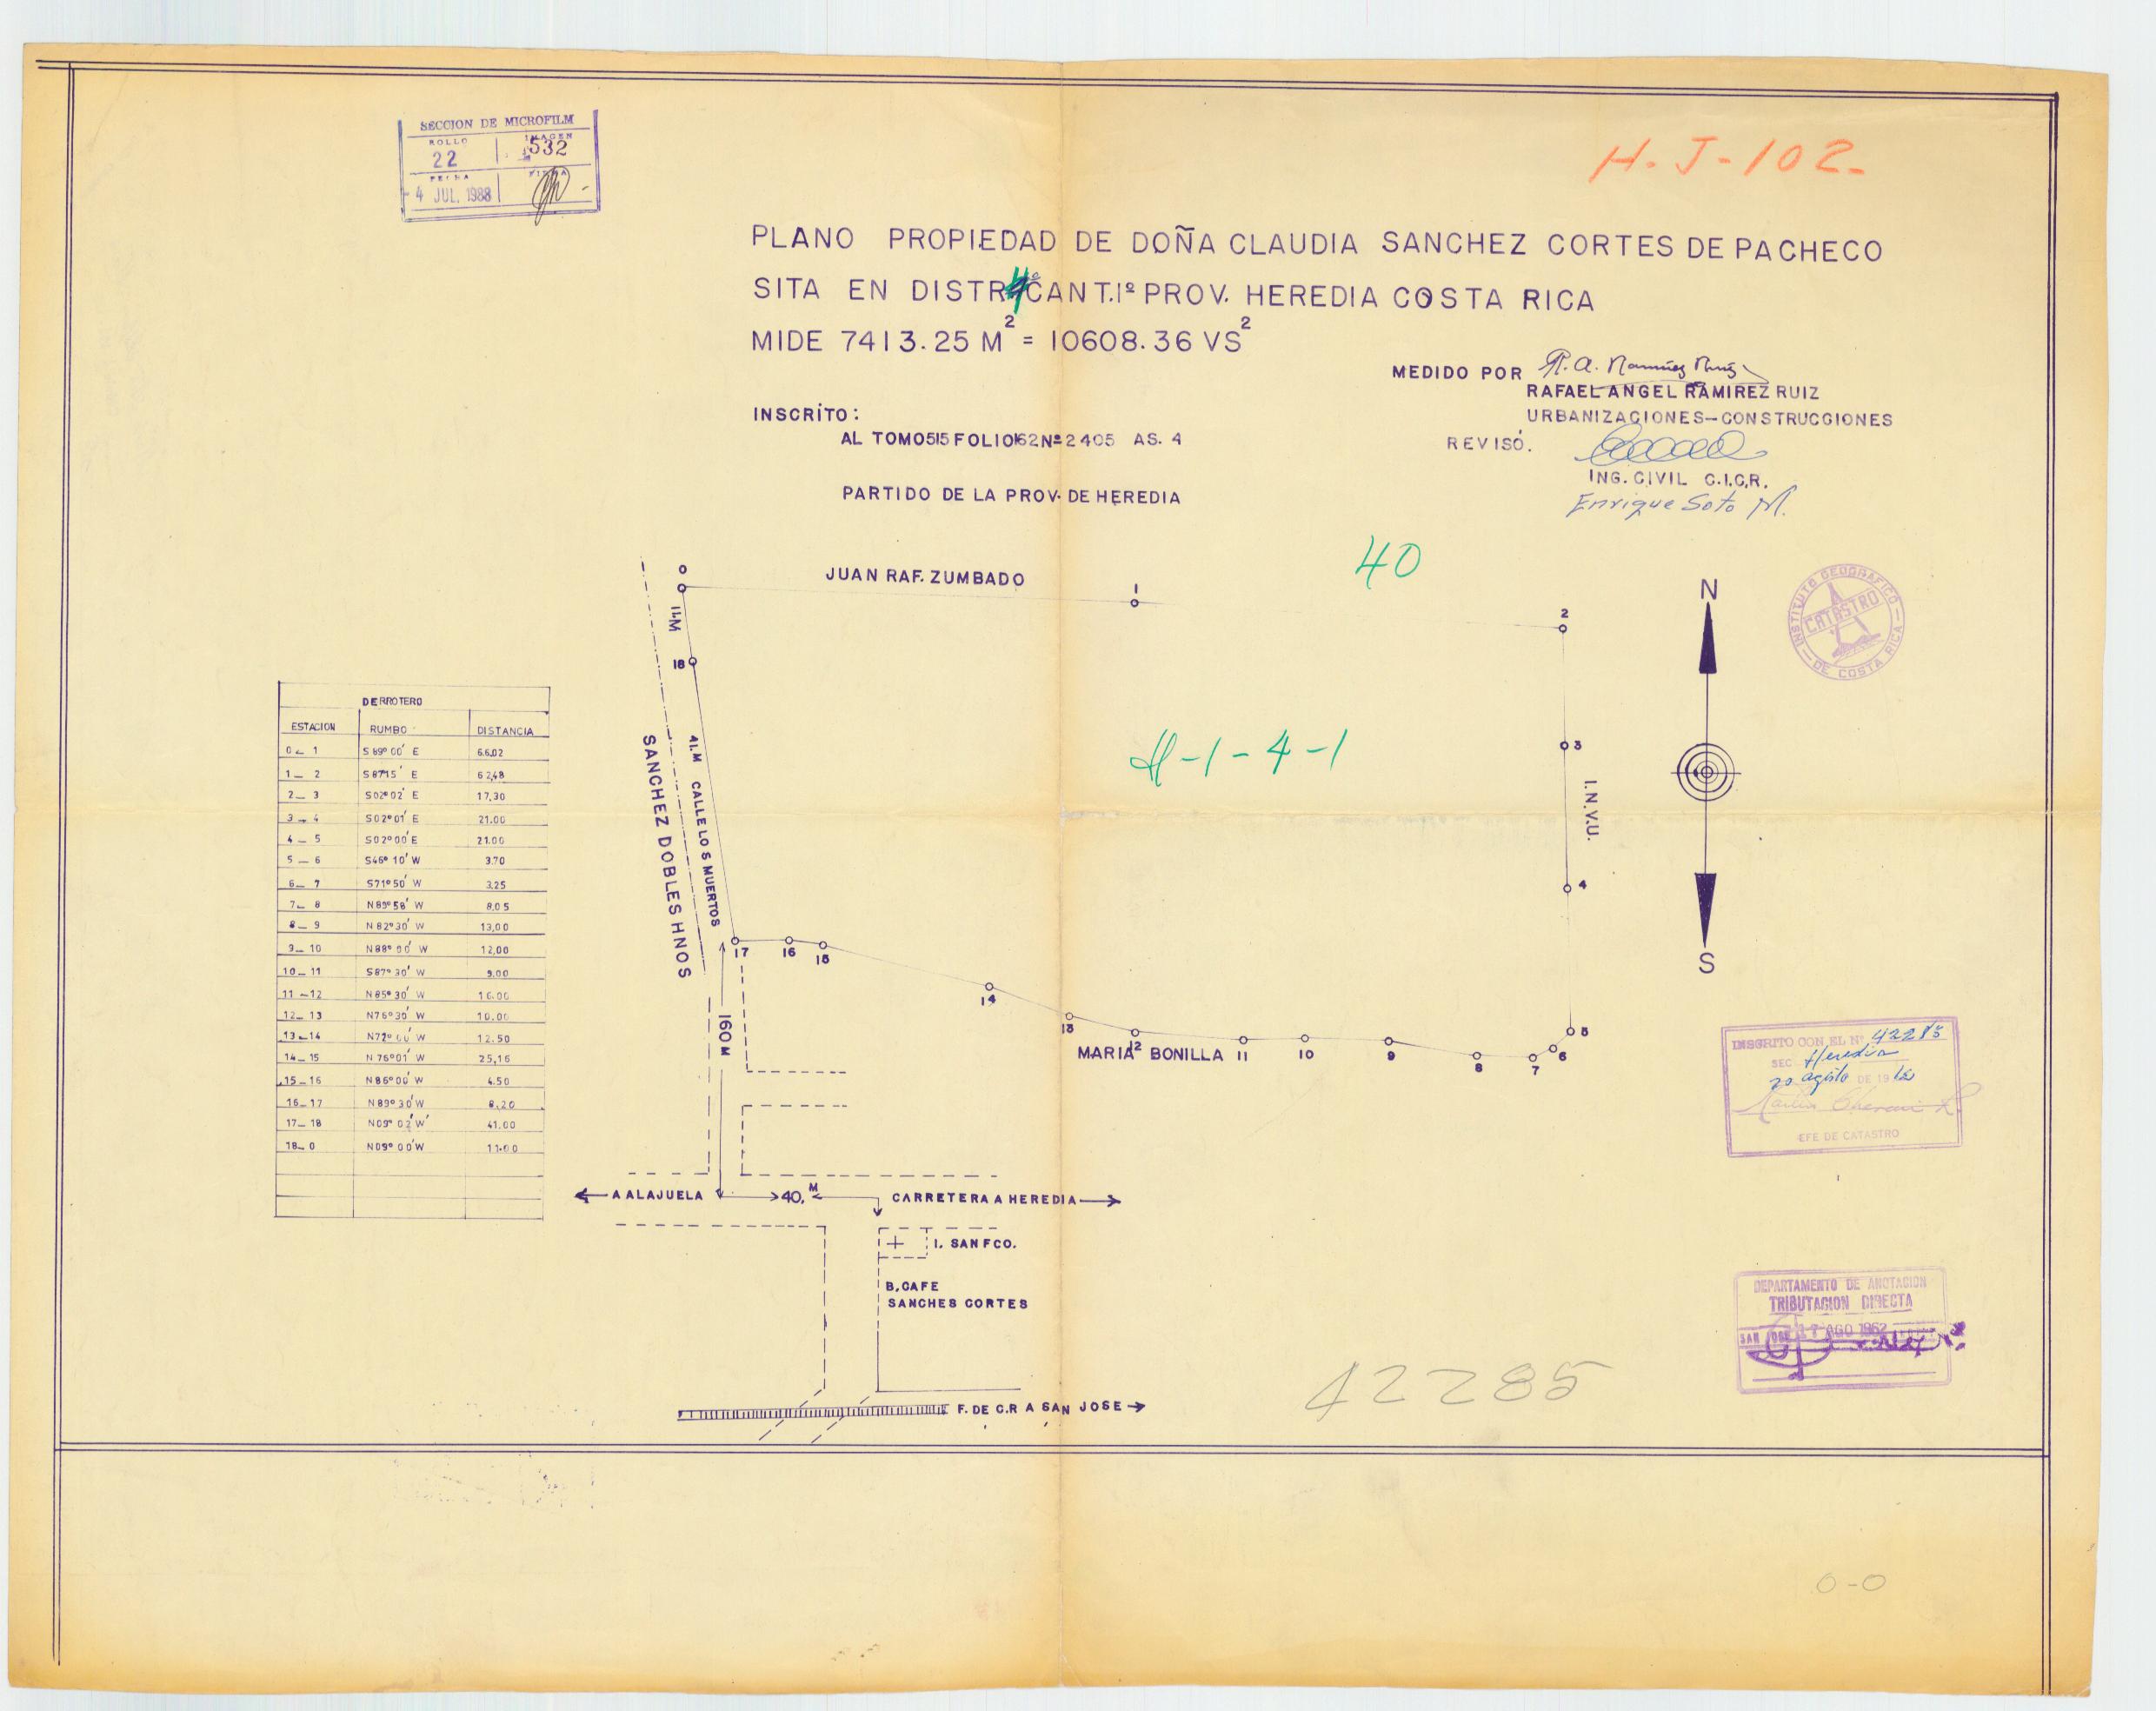 SECCION DE MICROFILM
ROLLO IMAGEN
22 532
FECHA FIRMA
4 JUL. 1988
H. J-102-
PLANO PROPIEDAD DE DOÑA CLAUDIA SANCHEZ CORTES DE PACHECO
SITA EN DISTR 4º CANT.1º PROV. HEREDIA COSTA RICA
MIDE 7413.25 M² = 10608.36 VS²
MEDIDO POR R. A. Ramírez Ruiz
RAFAEL ANGEL RAMIREZ RUIZ
URBANIZACIONES-CONSTRUCCIONES
REVISÓ.
ING. CIVIL C.I.C.R.
Enrique Soto M.
INSCRITO:
AL TOMO 515 FOLIO 162 Nº 2405 AS. 4
PARTIDO DE LA PROV. DE HEREDIA
JUAN RAF. ZUMBADO
40
H-1-4-1
N
S
INSTITUTO GEOGRAFICO
CATASTRO
DE COSTA RICA
DERROTERO
ESTACION RUMBO DISTANCIA
0 - 1 S 89º 00' E 66.02
1 - 2 S 87 15' E 62,48
2 - 3 S02º 02' E 17,30
3 - 4 S02º 01' E 21.00
4 - 5 S02º 00' E 21.00
5 - 6 S46º 10' W 3.70
6 - 7 S71º 50' W 3.25
7 - 8 N89º 58' W 8.05
8 - 9 N82º 30' W 13,00
9 - 10 N88º 00' W 12,00
10 - 11 S87º 30' W 9.00
11 - 12 N85º 30' W 16.00
12 - 13 N76º 30' W 10.00
13 - 14 N72º 00' W 12.50
14 - 15 N 76º 01' W 25,16
15 - 16 N86º 00' W 4.50
16 - 17 N89º 30' W 8,20
17 - 18 N09º 02' W 41.00
18 - 0 N09º 00' W 11.00
0
1
2
3
4
5
6
7
8
9
10
11
12
13
14
15
16
17
18
11.M
41.M CALLE LOS MUERTOS
SANCHEZ DOBLES HNOS
I.N.V.U.
MARIA BONILLA
160 M
A ALAJUELA
40. M
CARRETERA A HEREDIA
I. SAN FCO.
B. CAFE
SANCHES CORTES
F. DE C.R A SAN JOSE
INSCRITO CON EL Nº 42285
SEC. Heredia
20 agosto DE 19 62
JEFE DE CATASTRO
DEPARTAMENTO DE ANOTACION
TRIBUTACION DIRECTA
SAN JOSE 17 AGO 1962
42285
0-0